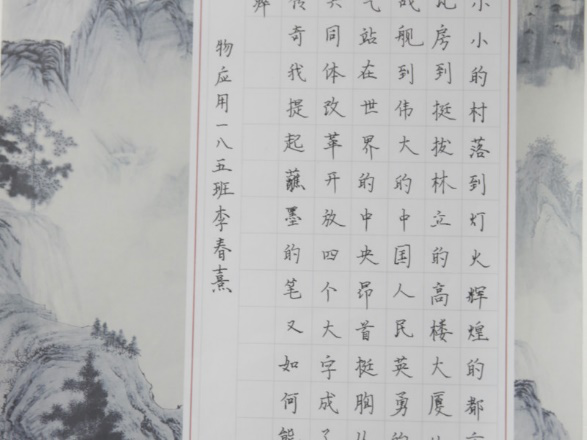 小小的村落到灯火辉煌的都
瓦房到挺拔林立的高楼大厦
战舰到伟大的中国人民英勇的
气站在世界的中央昂首挺胸
共同体改革开放四个大字成了
传奇我提起蘸墨的笔又如何能
物应用一八五班李春熹